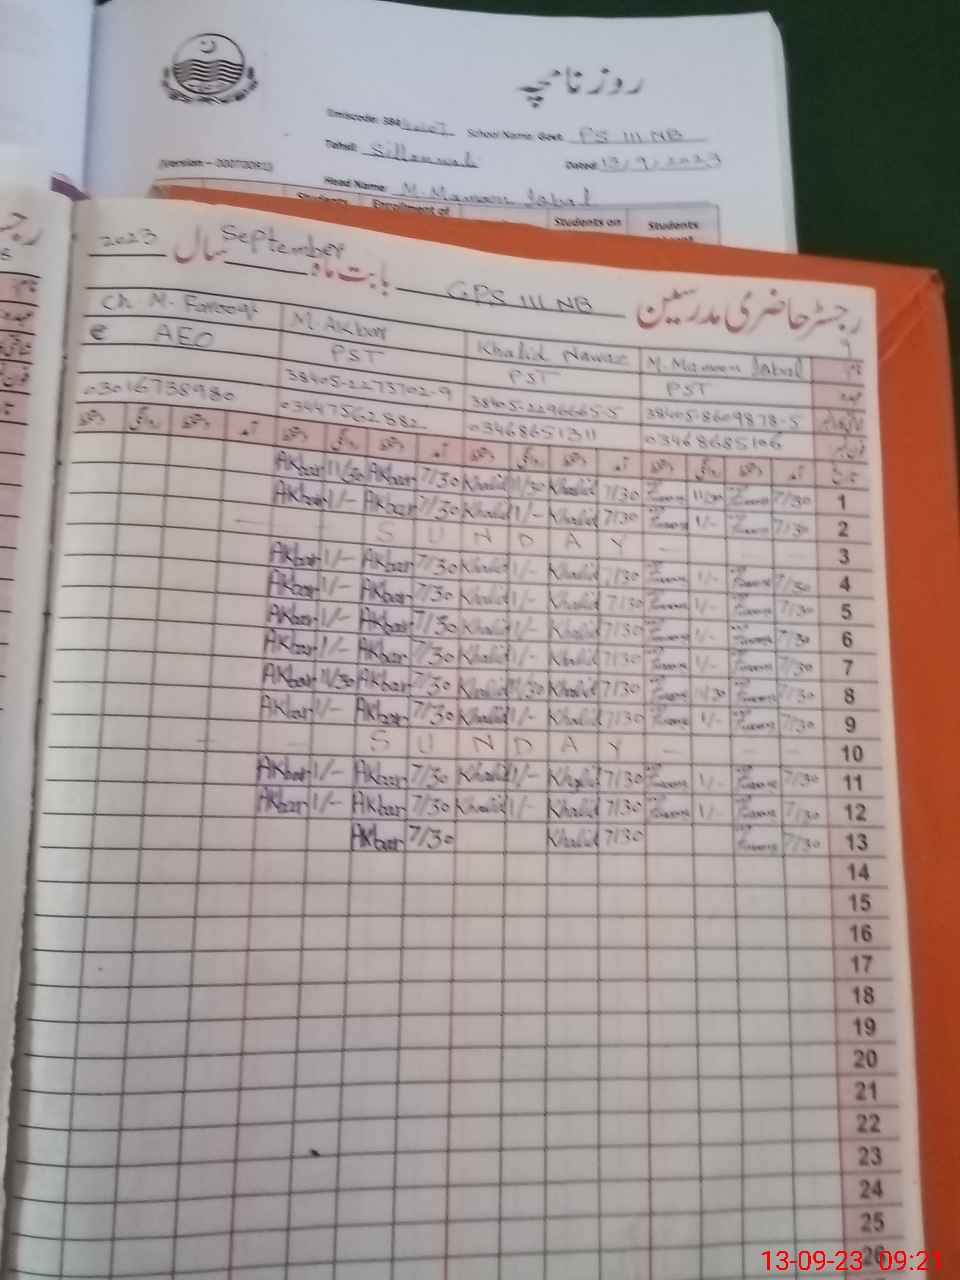 روزنامچہ
Emiscode: 384 School Name: Govt. PS 111 NB
Tehsil: Sillanwali Dated: 13/9/2023
(Version – 20073081)
Head Name: M. Mamoon Iqbal
Students Enrollment of Students on Students
رجسٹر حاضری مدرسین GPS 111 NB بابت ماہ September سال 2023
Ch M. Farooq M. Akbar Khalid Nawaz M. Mamoon Iqbal نام
AEO PST PST PST عہدہ
38405-2273702-9 38405-2296665-5 38405-8609878-5
03016738980 03447562882 03468651311 03468685106
دستخط روانگی دستخط آمد دستخط روانگی دستخط آمد دستخط روانگی دستخط آمد دستخط روانگی دستخط آمد تاریخ
Akbar 11/30 Akbar 7/30 Khalid 11/30 Khalid 7/30 11/30 7/30 1
Akbar 1/- Akbar 7/30 Khalid 1/- Khalid 7/30 1/- 7/30 2
S U N D A Y 3
Akbar 1/- Akbar 7/30 Khalid 1/- Khalid 7/30 1/- 7/30 4
Akbar 1/- Akbar 7/30 Khalid 1/- Khalid 7/30 1/- 7/30 5
Akbar 1/- Akbar 7/30 Khalid 1/- Khalid 7/30 1/- 7/30 6
Akbar 1/- Akbar 7/30 Khalid 1/- Khalid 7/30 1/- 7/30 7
Akbar 11/30 Akbar 7/30 Khalid 11/30 Khalid 7/30 11/30 7/30 8
Akbar 1/- Akbar 7/30 Khalid 1/- Khalid 7/30 1/- 7/30 9
S U N D A Y 10
Akbar 1/- Akbar 7/30 Khalid 1/- Khalid 7/30 1/- 7/30 11
Akbar 1/- Akbar 7/30 Khalid 1/- Khalid 7/30 1/- 7/30 12
Akbar 7/30 Khalid 7/30 7/30 13
14
15
16
17
18
19
20
21
22
23
24
25
26
13-09-23 09:21